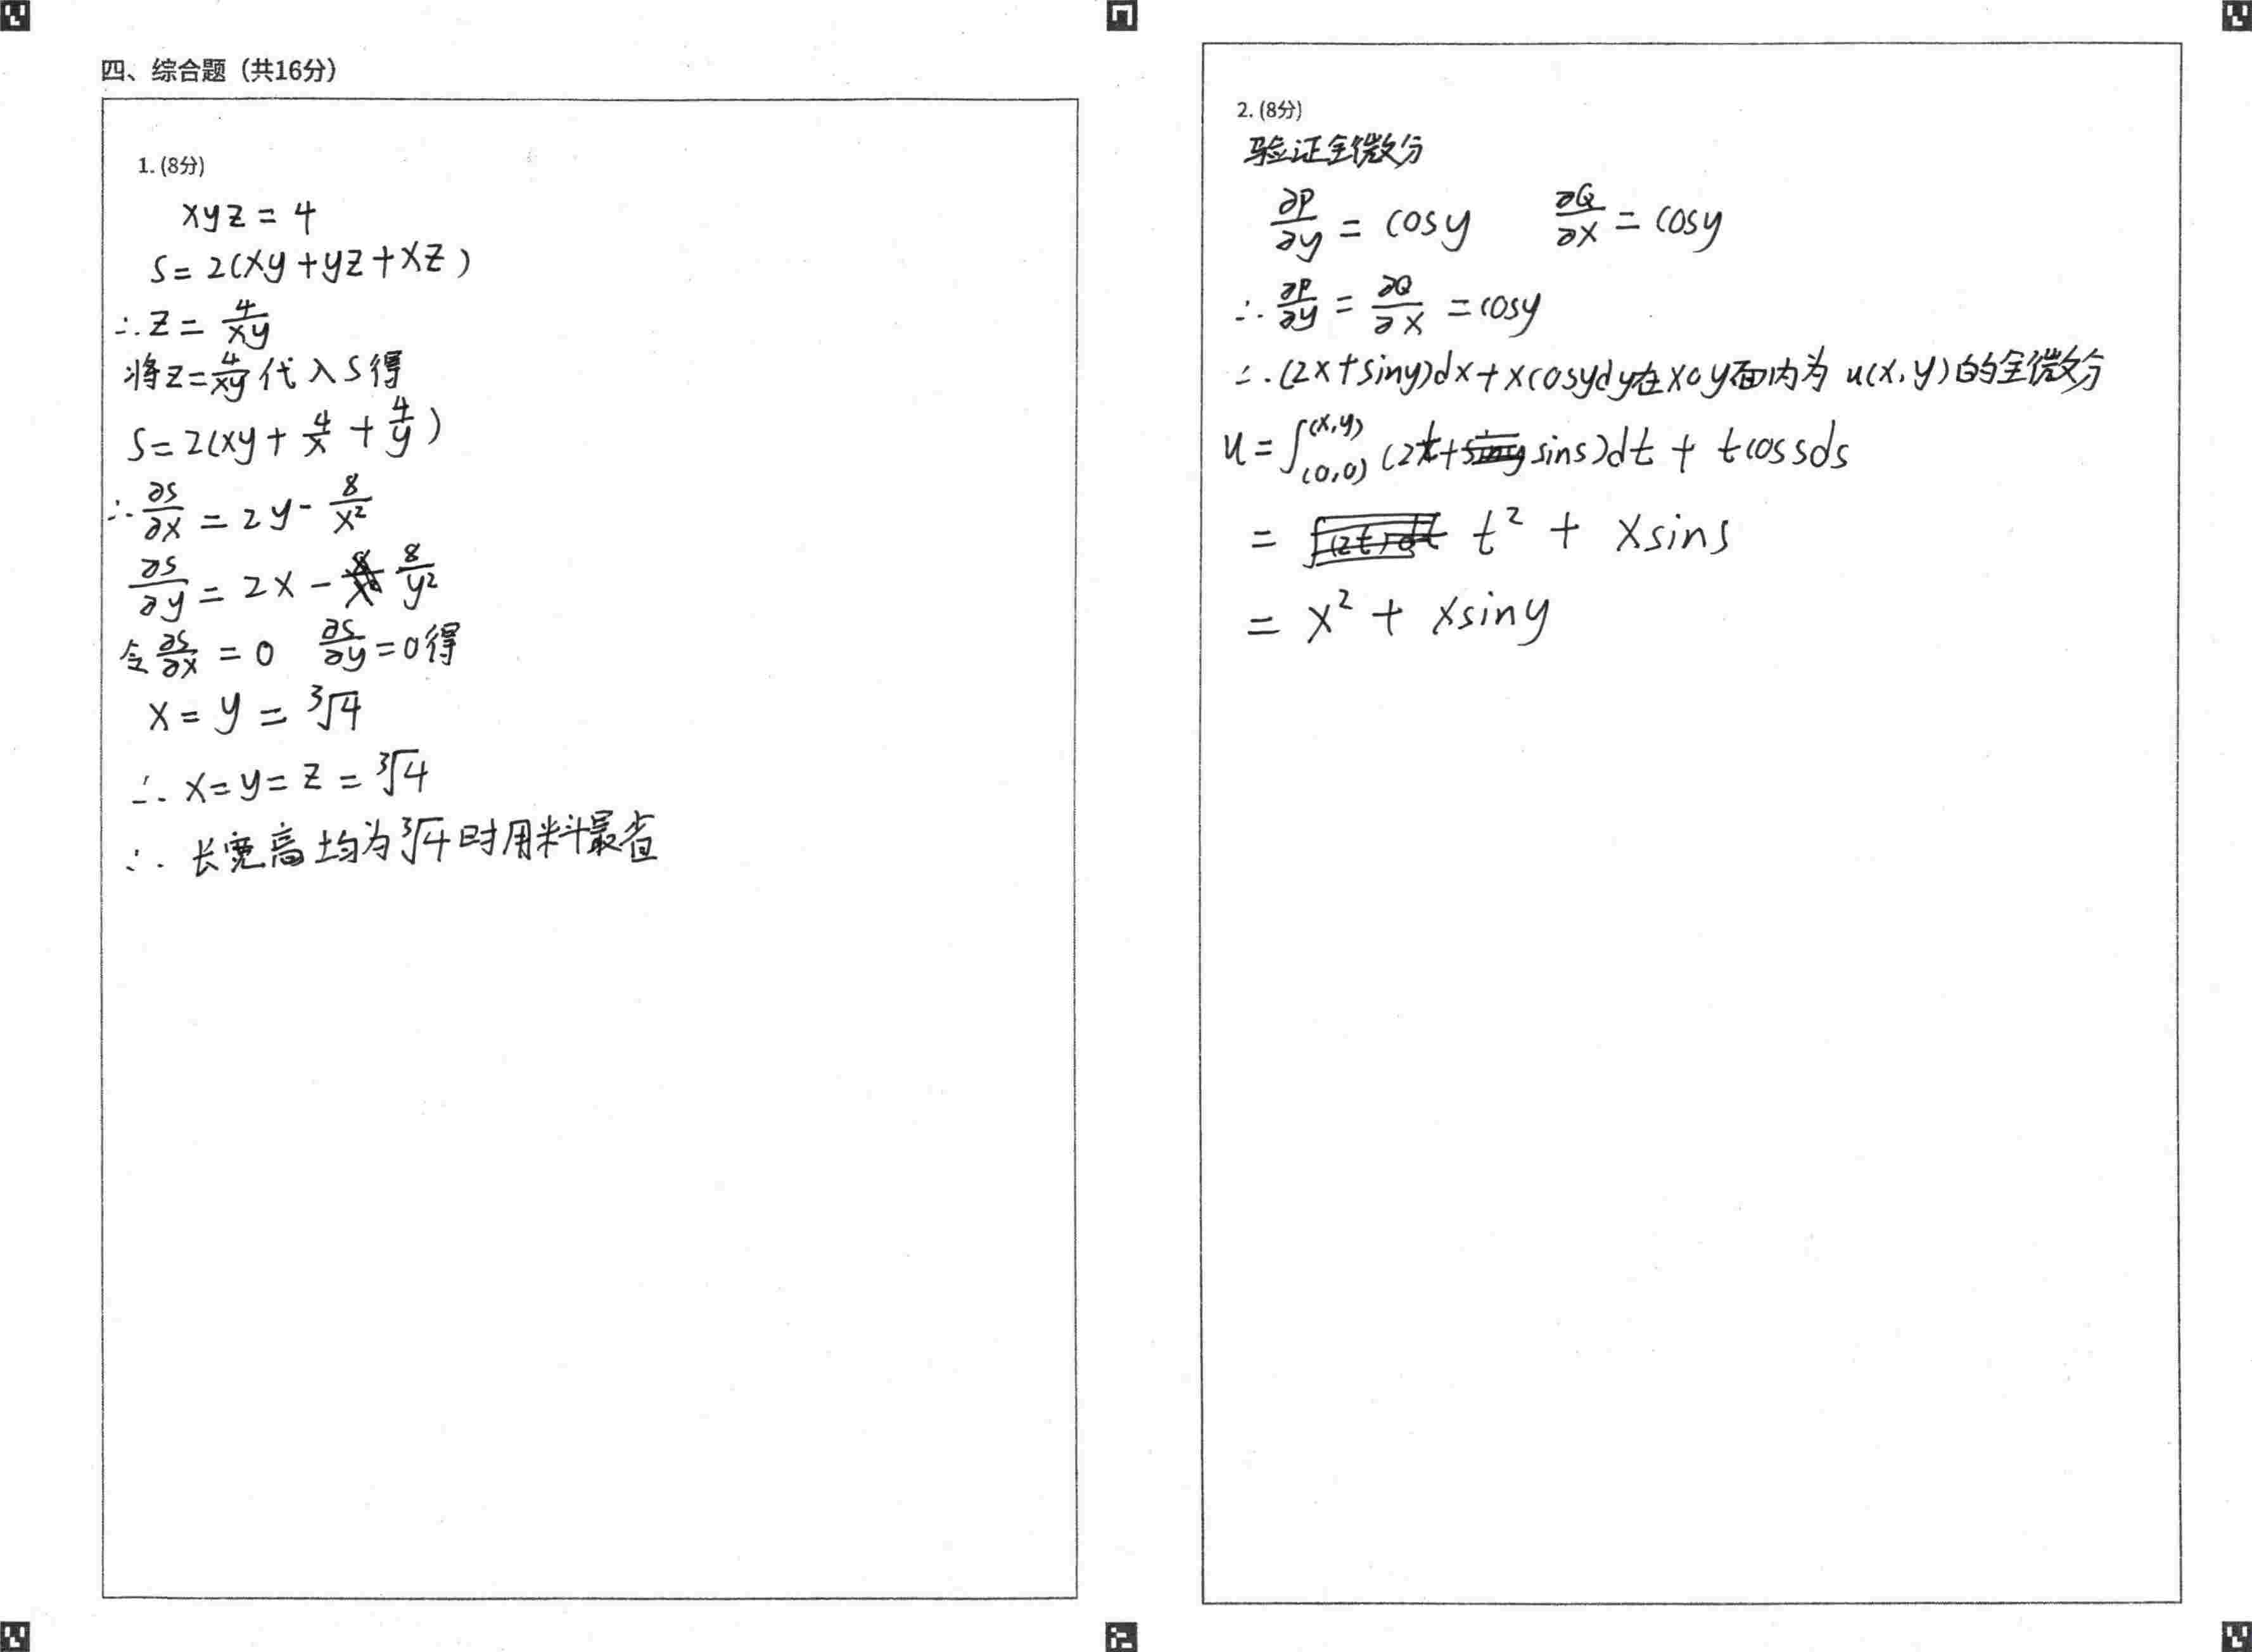 四、综合题（共16分）
1. (8分)
xyz = 4
S = 2(xy + yz + xz)
∴ z = 4/xy
将z = 4/xy 代入S得
S = 2(xy + 4/x + 4/y)
∴ ∂S/∂x = 2y - 8/x²
∂S/∂y = 2x - 8/y²
令 ∂S/∂x = 0 ∂S/∂y = 0 得
x = y = ³√4
∴ x = y = z = ³√4
∴ 长宽高均为³√4时用料最省
2. (8分)
验证全微分
∂P/∂y = cosy ∂Q/∂x = cosy
∴ ∂P/∂y = ∂Q/∂x = cosy
∴ (2x+siny)dx + xcosydy在xoy面内为u(x,y)的全微分
u = ∫₍₀,₀₎^(x,y) (2t + sins)dt + tcossds
= t² + xsins
= x² + xsiny